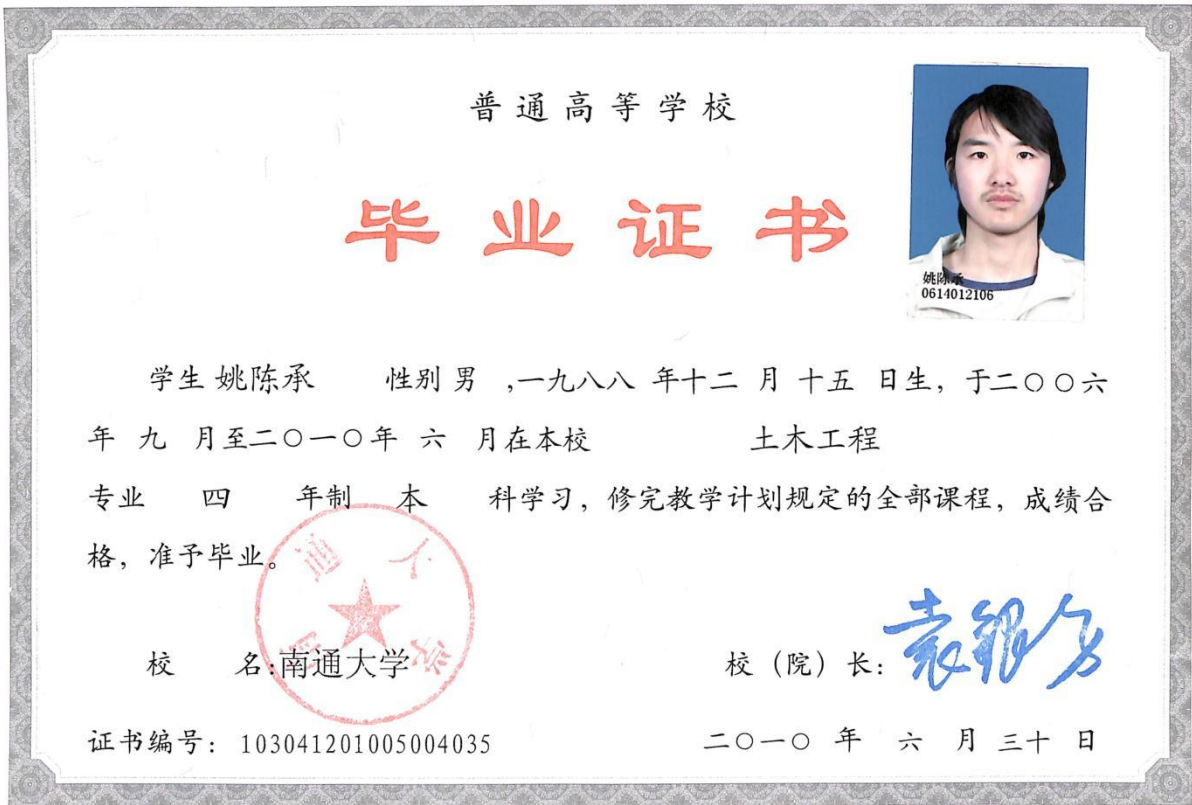 普通高等学校
毕业证书
姚陈承
0614012106
学生 姚陈承 性别 男 ,一九八八 年十二 月 十五 日生，于二〇〇六
年 九 月至二〇一〇年 六 月在本校 土木工程
专业 四 年制 本 科学习，修完教学计划规定的全部课程，成绩合
格，准予毕业。
南通大学
校 名:南通大学 校（院）长： 袁银男
证书编号：103041201005004035 二〇一〇 年 六 月 三十 日